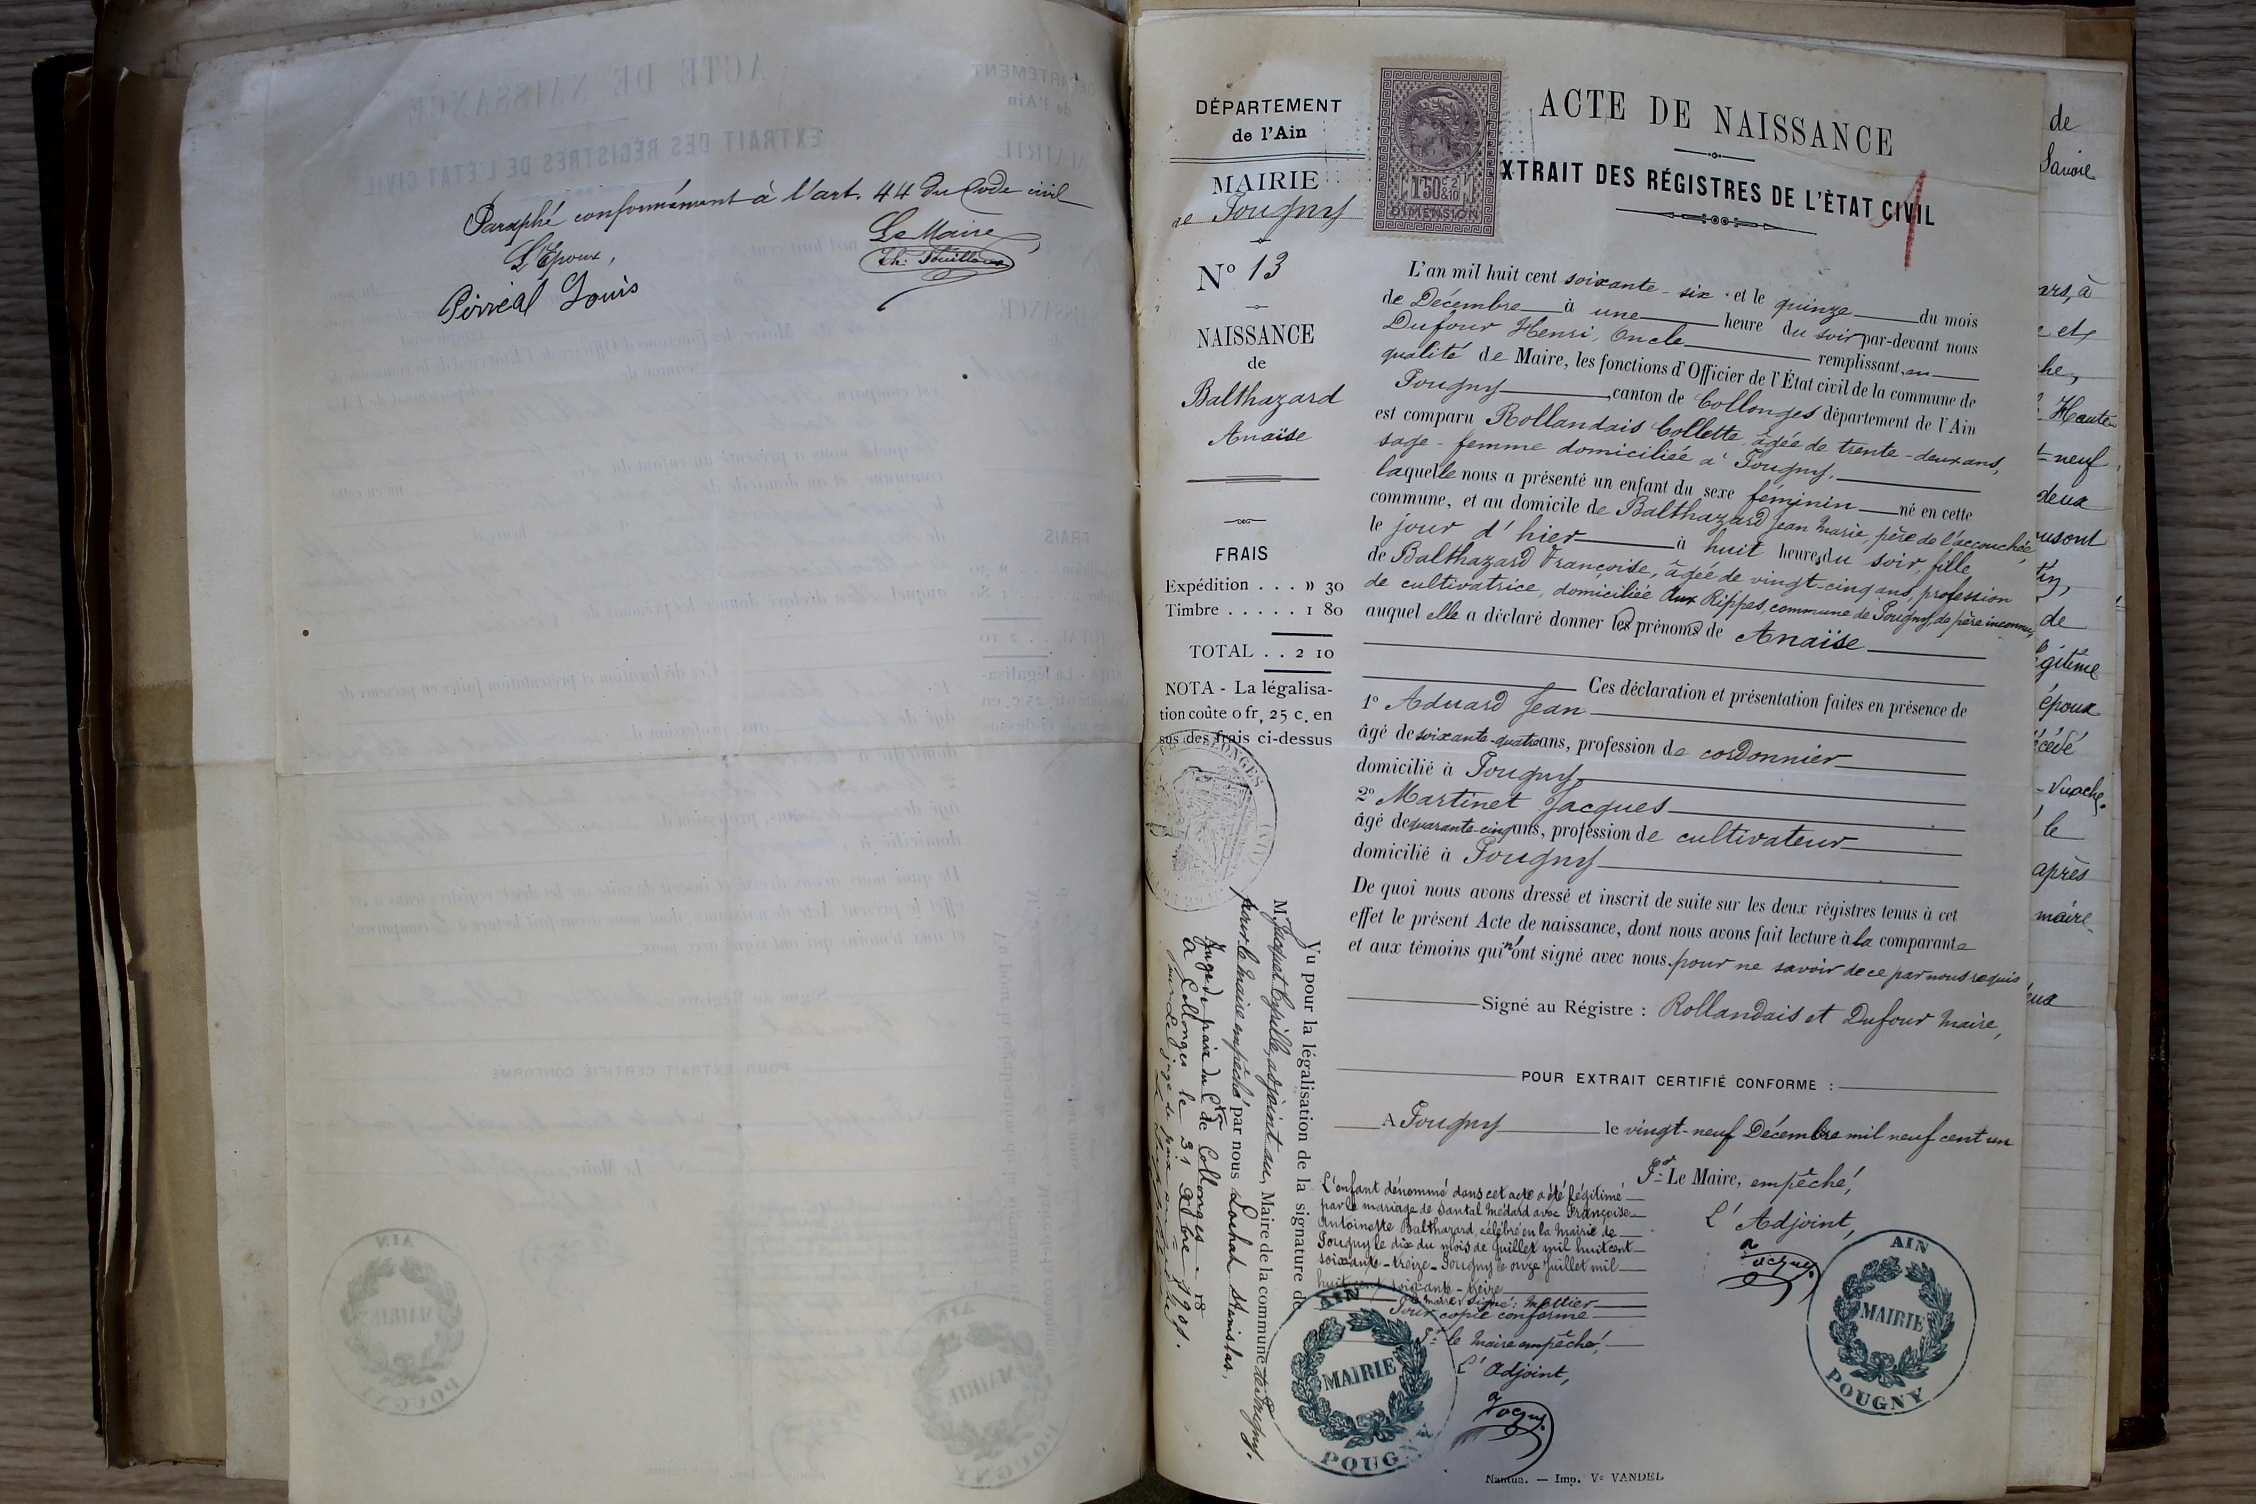 Paraphé conformément à l'art. 44 du Code civil
L'Epoux,
Le Maire
Pirréal Louis
DÉPARTEMENT
de l'Ain
MAIRIE
de Pougny
N° 13
NAISSANCE
de
Balthazard
Anaïse
FRAIS
Expédition . . . » 30
Timbre . . . . . 1 80
TOTAL . . 2 10
NOTA - La légalisa-
tion coûte 0 fr, 25 c. en
sus des frais ci-dessus
1F50 C 2/10
DIMENSION
ACTE DE NAISSANCE
XTRAIT DES RÉGISTRES DE L'ÈTAT CIVIL
1
L'an mil huit cent soixante-six et le quinze du mois
de Décembre à une heure du soir par-devant nous
Dufour Henri, Oncle remplissant en
qualité de Maire, les fonctions d'Officier de l'État civil de la commune de
Pougny, canton de Collonges département de l'Ain
est comparu Rollandais Collette, âgée de trente-deux ans,
sage-femme domiciliée à Pougny,
laquelle nous a présenté un enfant du sexe féminin né en cette
commune, et au domicile de Balthazard Jean Marie, père de l'accouchée
le jour d'hier à huit heures du soir, fille
de Balthazard Françoise, âgée de vingt-cinq ans, profession
de cultivatrice, domiciliée aux Rippes, commune de Pougny, de père inconnu,
auquel elle a déclaré donner les prénoms de Anaïse
Ces déclaration et présentation faites en présence de
1° Aduard Jean
âgé de soixante-quatre ans, profession de cordonnier
domicilié à Pougny
2° Martinet Jacques
âgé de quarante-cinq ans, profession de cultivateur
domicilié à Pougny
De quoi nous avons dressé et inscrit de suite sur les deux régistres tenus à cet
effet le présent Acte de naissance, dont nous avons fait lecture à la comparante
et aux témoins qui n'ont signé avec nous pour ne savoir de ce par nous requis
Signé au Régistre : Rollandais et Dufour Maire,
POUR EXTRAIT CERTIFIÉ CONFORME :
A Pougny le vingt-neuf Décembre mil neuf cent un
Pr Le Maire, empêché,
L'Adjoint,
L'enfant dénommé dans cet acte a été légitimé
par le mariage de Santal Médard avec Françoise
Antoinette Balthazard, célébré en la Mairie de
Pougny le dix du mois de Juillet mil huit cent
soixante-treize - Pougny le onze Juillet mil
huit cent soixante-treize
Le maire signé : Mottier
Pour copie conforme
Pr le Maire empêché,
L'Adjoint,
AIN
MAIRIE
POUGNY
AIN
MAIRIE
POUGNY
Vu pour la légalisation de la signature de
M. Jacquet Cyrille, adjoint au Maire de la commune de Pougny.
pour le maire empêché par nous Louhat Stanislas,
Juge de paix du Cton de Collonges
A Collonges le 31 Xbre 1901.
Nantua. — Imp. Ve VANDEL
de
Savoie
ars, à
et
he,
Haute
neuf,
deux
de
gitime
époux
cédé
Vuache.
le
après
maire